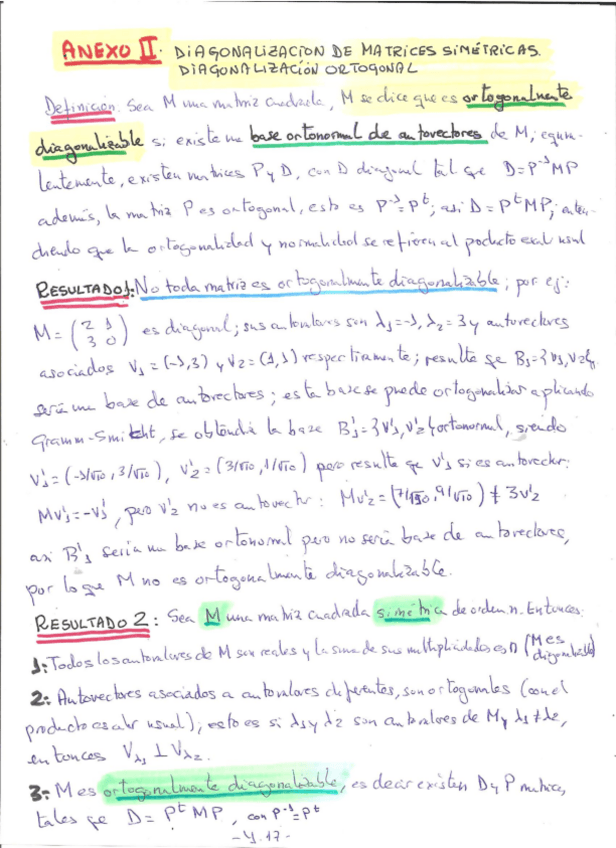 ANEXO II. DIAGONALIZACION DE MATRICES SIMÉTRICAS.
DIAGONALIZACIÓN ORTOGONAL
Definición. Sea M una matriz cuadrada, M se dice que es ortogonalmente
diagonalizable si existe una base ortonormal de autovectores de M; equiva-
lentemente, existen matrices P y D, con D diagonal tal que D=P⁻¹MP
además, la matriz P es ortogonal, esto es P⁻¹=Pᵗ; así D=PᵗMP; enten-
diendo que la ortogonalidad y normalidad se refieren al producto escal usual
RESULTADO 1: No toda matriz es ortogonalmente diagonalizable; por ej:
M = (2 1 / 3 0) es diagonal; sus autovalores son λ1=-1, λ2=3 y autovectores
asociados V1=(-1,3) y V2=(1,1) respectivamente; resulta que B1={V1,V2}
sería una base de autovectores; esta base se puede ortogonalizar aplicando
Gramm-Smitcht, se obtendría la base B'1={V'1,V'2} ortonormal, siendo
V'1=(-1/√10, 3/√10), V'2=(3/√10, 1/√10) pero resulta que V'1 si es autovector:
MV'1=-V'1, pero V'2 no es autovector: MV'2=(7/√10, 9/√10) ≠ 3V'2
así B'1 sería una base ortonormal pero no sería base de autovectores,
por lo que M no es ortogonalmente diagonalizable.
RESULTADO 2: Sea M una matriz cuadrada simétrica de orden n. Entonces:
1: Todos los autovalores de M son reales y la suma de sus multiplicidades es n (M es diagonalizable)
2: Autovectores asociados a autovalores diferentes, son ortogonales (con el
producto escalar usual); esto es si λ1 y λ2 son autovalores de M y λ1≠λ2,
entonces Vλ1 ⊥ Vλ2.
3: M es ortogonalmente diagonalizable, es decir existen D y P matrices,
tales que D = PᵗMP, con P⁻¹=Pᵗ
-4.17-